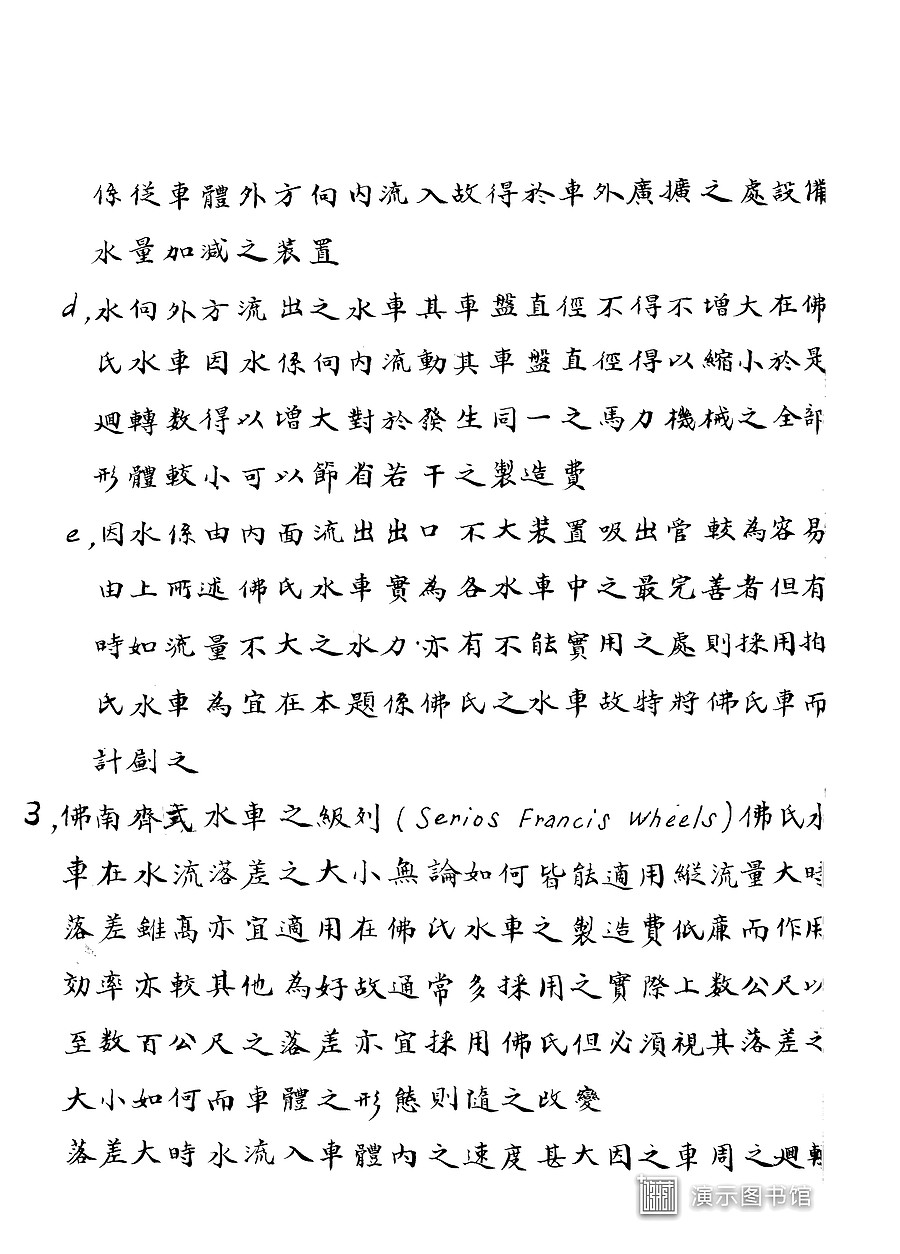 係従車體外方向内流入故得於車外廣擴之處設備
水量加減之装置
d,水向外方流出之水車其車盤直徑不得不增大在佛
氏水車因水係向内流動其車盤直徑得以縮小於是
廻轉数得以增大對於發生同一之馬力機械之全部
形體較小可以節省若干之製造費
e,因水係由内面流出出口不大装置吸出管較為容易
由上所述佛氏水車實為各水車中之最完善者但有
時如流量不大之水力亦有不能實用之處則採用拍
氏水車為宜在本題係佛氏之水車故特將佛氏車而
計劃之
3,佛南齊式水車之級列(Serios Francis Wheels)佛氏水
車在水流落差之大小無論如何皆能適用縱流量大時
落差雖高亦宜適用在佛氏水車之製造費低廉而作用
効率亦較其他為好故通常多採用之實際上数公尺以
至数百公尺之落差亦宜採用佛氏但必須視其落差之
大小如何而車體之形態則隨之改變
落差大時水流入車體内之速度甚大因之車周之廻轉
演示图书馆